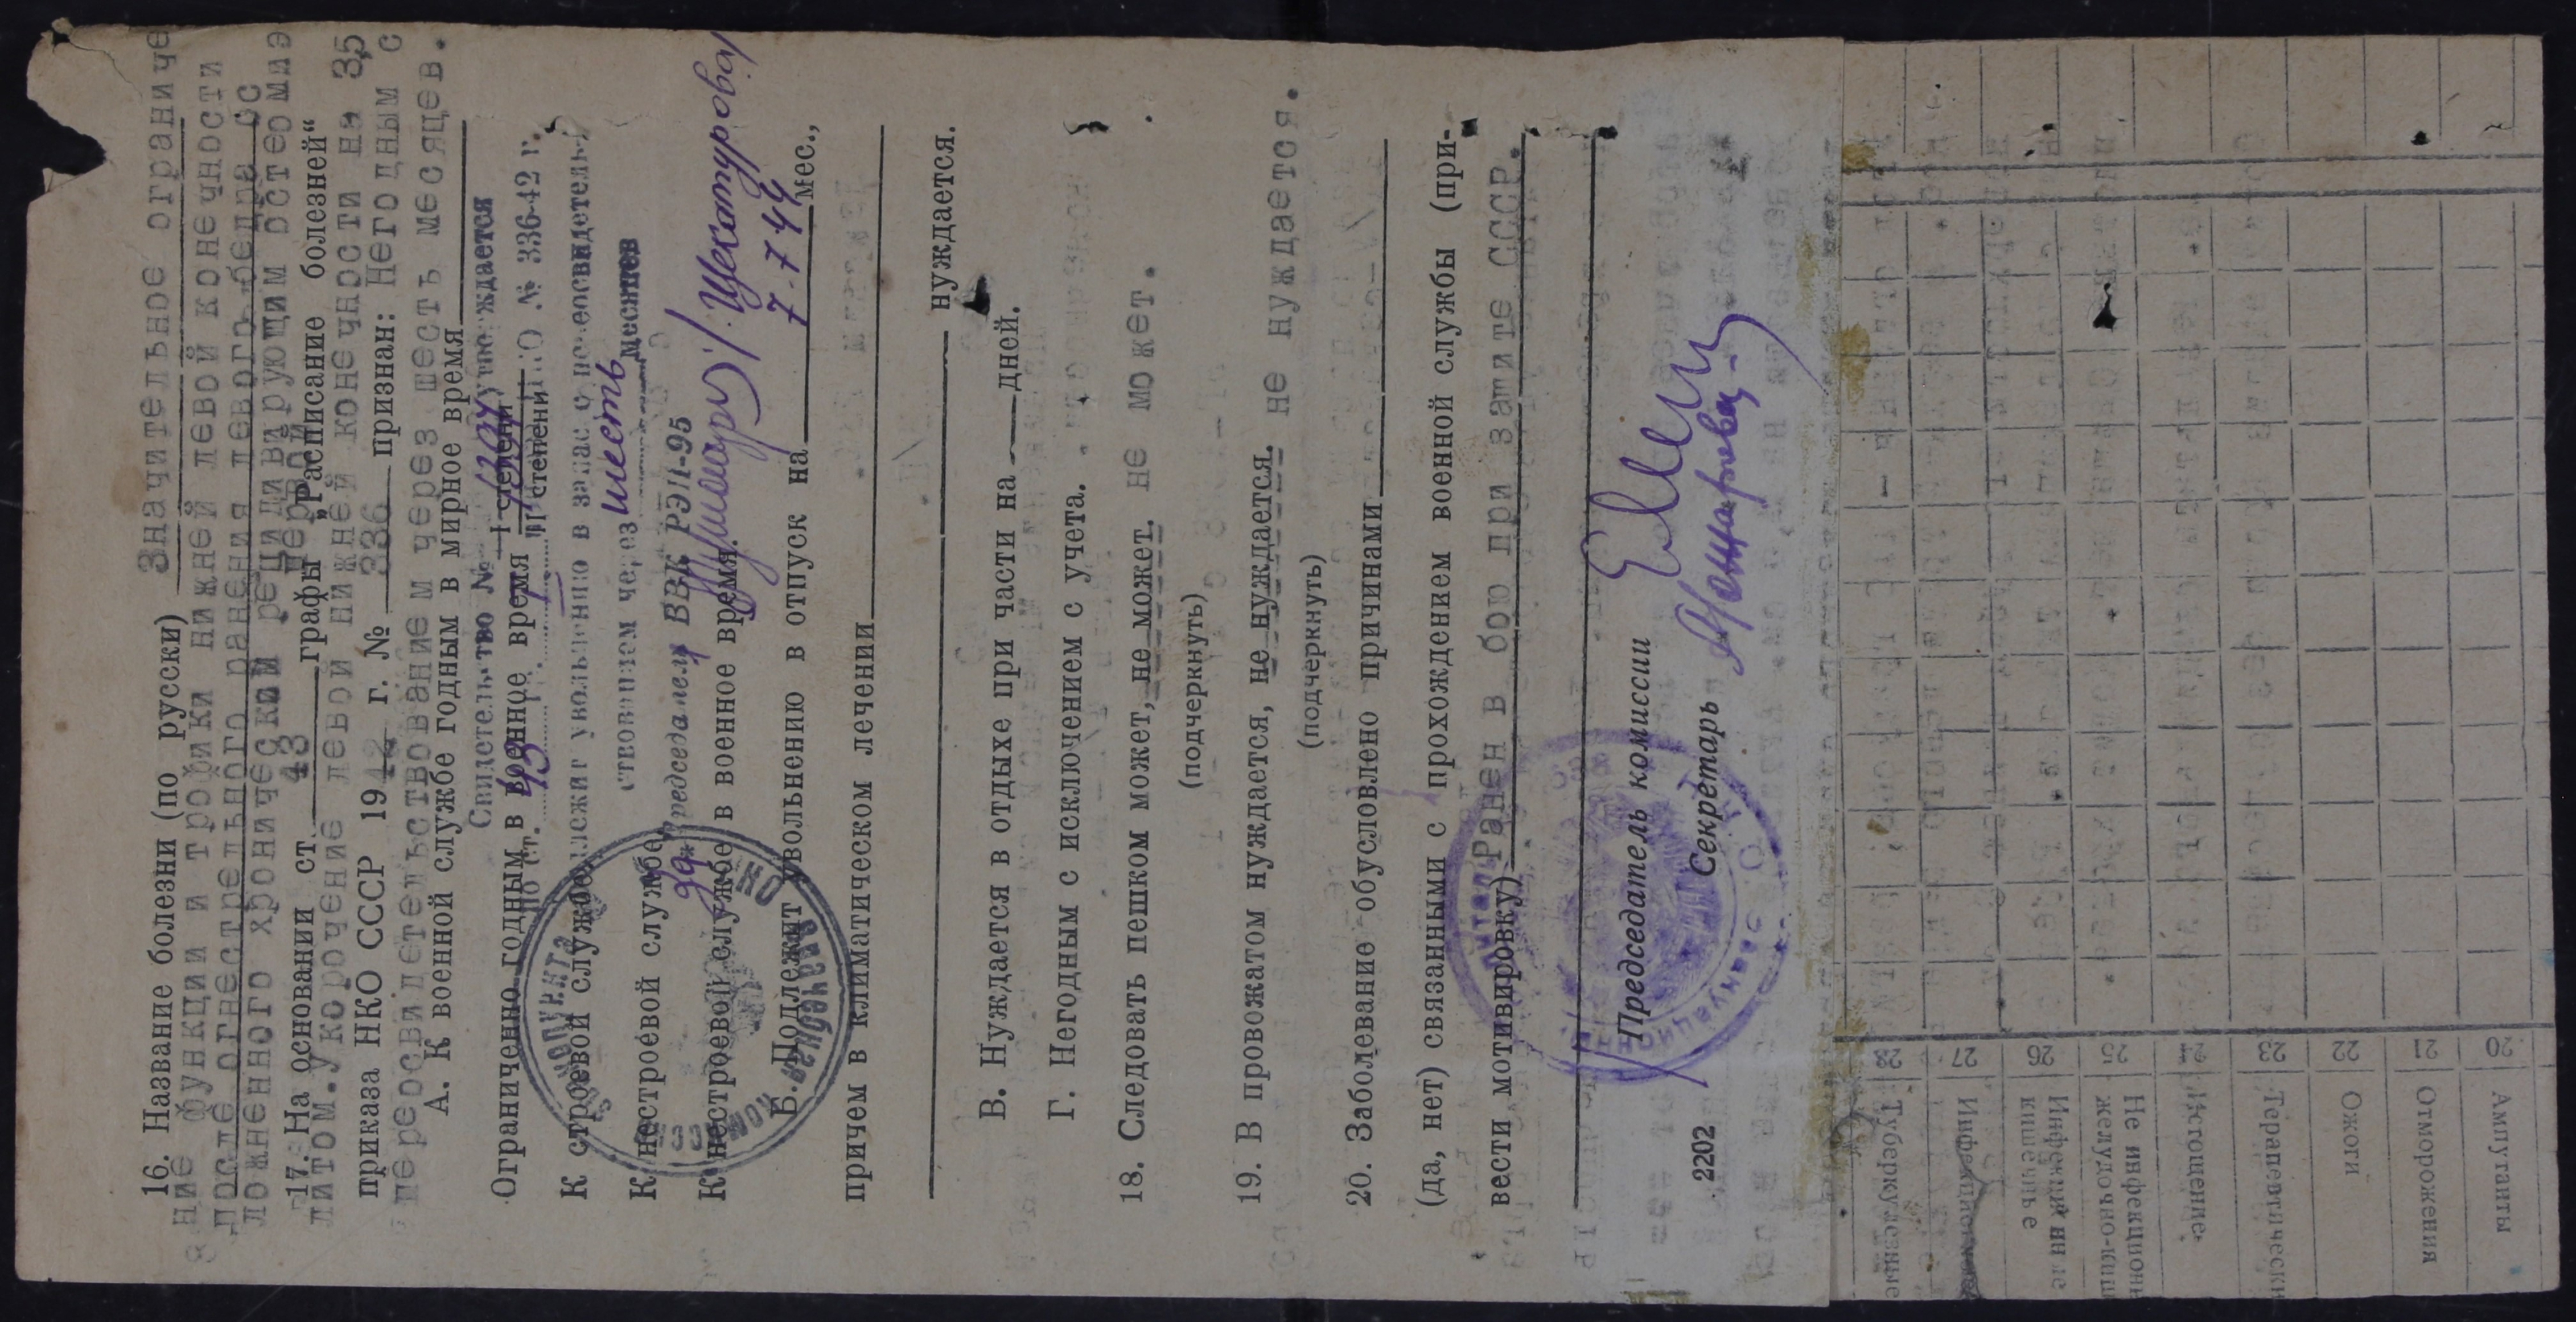 16. Название болезни (по русски) Значительное ограниче
ние функции и трофики нижней левой конечности
после огнестрельного ранения левого бедра ос
ложненного хроническим рецидивирующим остеомиэ
17. На основании ст. 43 графы первой „Расписание болезней“
литом. Укорочение левой нижней конечности на 3,5
приказа НКО СССР 1942 г. № 336 признан: Негодным с
переосвидетельствованием через шесть месяцев.
А. К военной службе годным в мирное время
Свидетельство № утверждается
Ограниченно годным в военное время I степени
по ст. 43 II степени НКО № 336-42 г.
К строевой службе подлежит увольнению в запас с переосвидетель-
ствованием через шесть месяцев
К нестроевой службе
Председатель ВВК РЭП-95
К нестроевой службе в военное время.
7-7 44
Б. Подлежит увольнению в отпуск на мес.,
причем в климатическом лечении
нуждается.
В. Нуждается в отдыхе при части на дней.
Г. Негодным с исключением с учета.
18. Следовать пешком может, не может. не может.
(подчеркнуть)
19. В провожатом нуждается, не нуждается. не нуждается.
(подчеркнуть)
20. Заболевание обусловлено причинами
(да, нет) связанными с прохождением военной службы (при-
вести мотивировку) Ранен в бою при защите СССР.
Председатель комиссии
Секретарь
2202
Туберкулезные 28
27
Инфекционные
кишечные 26
Не инфекцион
желудочно-киш 25
Истощение 24
Терапевтически 23
Ожоги 22
Отморожения 21
Ампутанты 20